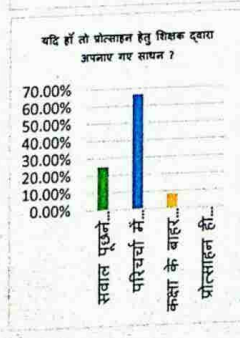 यदि हाँ तो प्रोत्साहन हेतु शिक्षक द्वारा
अपनाए गए साधन ?
70.00%
60.00%
50.00%
40.00%
30.00%
20.00%
10.00%
0.00%
सवाल पूछने...
परिचर्चा में...
कक्षा के बाहर...
प्रोत्साहन ही...